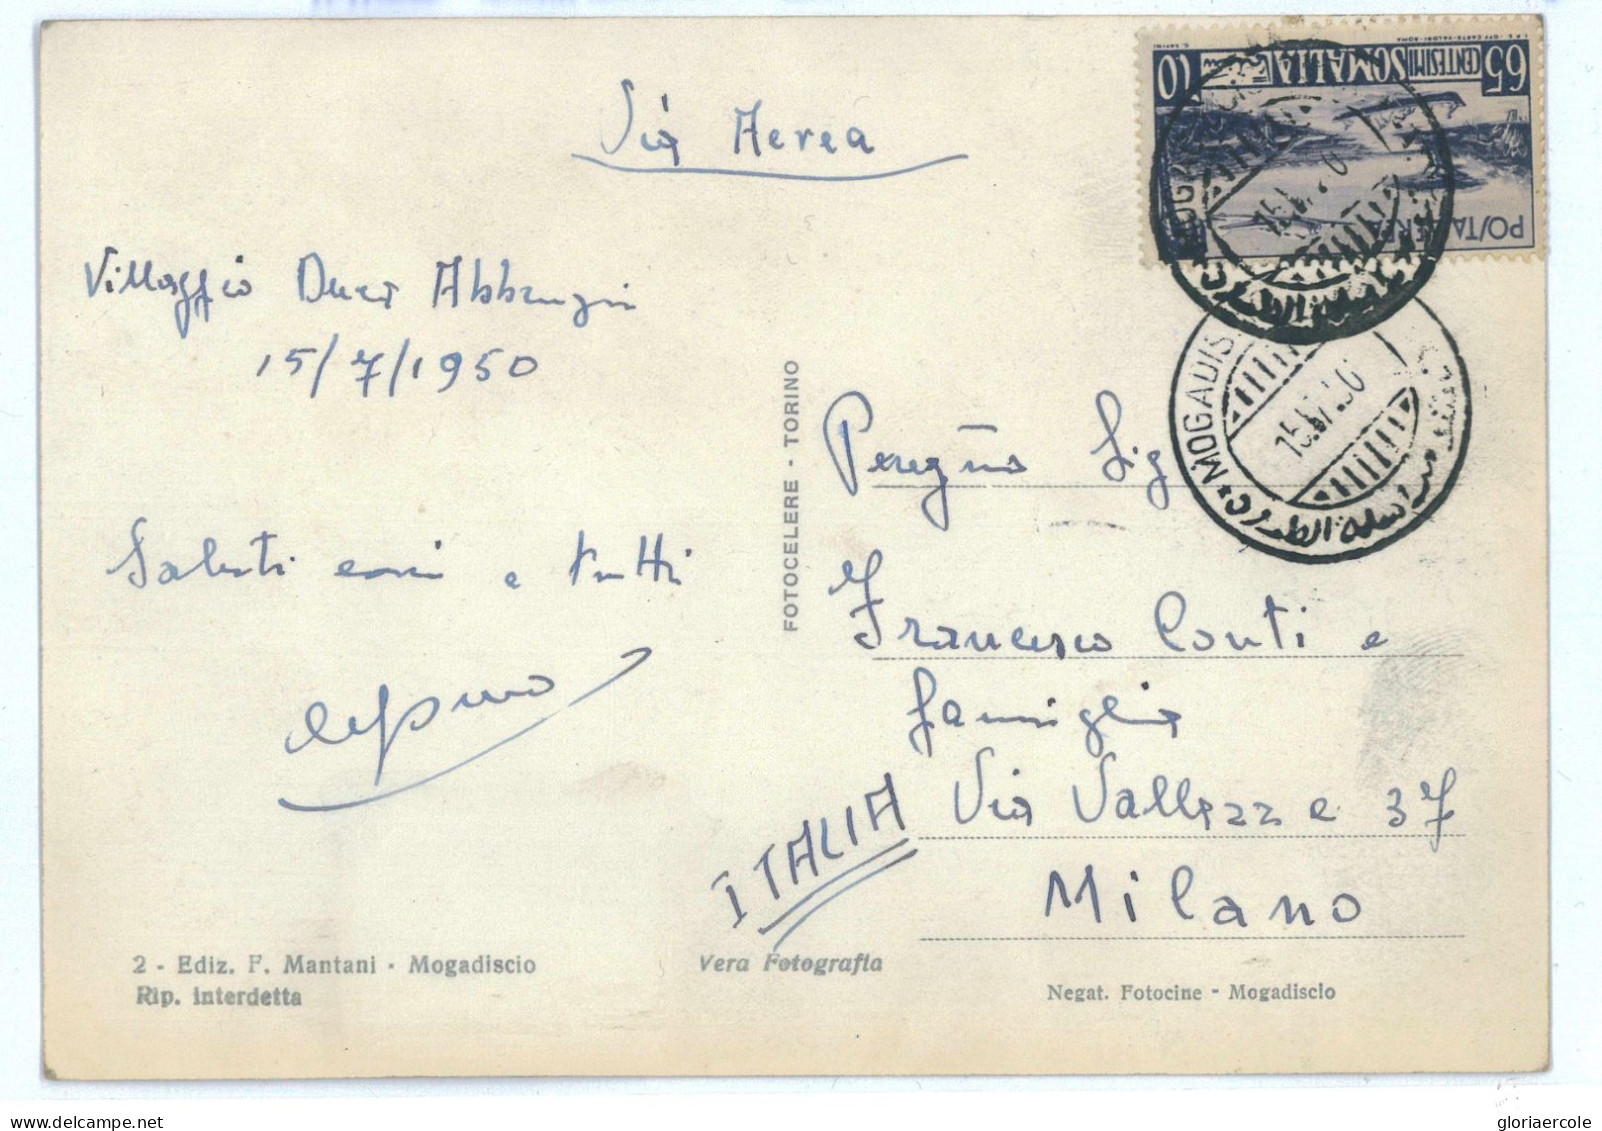 Via Aerea
Villaggio Duca Abbruzzi
15/7/1950
Saluti cari e tutti
FOTOCELERE - TORINO
65 CENTESIMI SOMALIA
POSTA AEREA
MOGADIS
15.7.50
Sig
Francesco Conti e
famiglia
Via Vallazze 37
Milano
ITALIA
2 - Ediz. F. Mantani - Mogadiscio
Rip. interdetta
Vera Fotografia
Negat. Fotocine - Mogadiscio
delcampe.net
gloriaercole